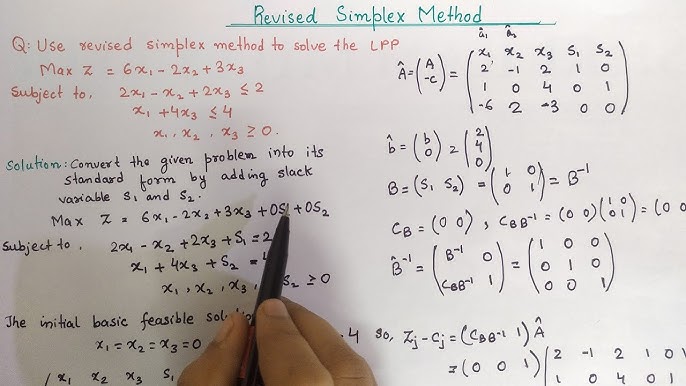 Revised Simplex Method
Q: Use revised simplex method to solve the LPP
Max Z = 6x₁ - 2x₂ + 3x₃
Subject to, 2x₁ - x₂ + 2x₃ ≤ 2
x₁ + 4x₃ ≤ 4
x₁, x₂, x₃ ≥ 0.
Solution: Convert the given problem into its
standard form by adding slack
variable S₁ and S₂.
Max Z = 6x₁ - 2x₂ + 3x₃ + 0S₁ + 0S₂
Subject to, 2x₁ - x₂ + 2x₃ + S₁ = 2
x₁ + 4x₃ + S₂ =
x₁, x₂, x₃, S₂ ≥ 0
The initial basic feasible
x₁ = x₂ = x₃ = 0 . 4
x₁ x₂ x₃ S₁ S₂
â₁ â₂
x₁ x₂ x₃ S₁ S₂
Â = (A -c) = (2 -1 2 1 0
1 0 4 0 1
-6 2 -3 0 0)
b̂ = (b 0) = (2 4 0)
B = (S₁ S₂) = (1 0 0 1) = B⁻¹
C_B = (0 0), C_B B⁻¹ = (0 0)(1 0 0 1) = (0 0
B̂⁻¹ = (B⁻¹ 0 C_B B⁻¹ 1) = (1 0 0
0 1 0
0 0 1)
So, Zj - Cj = (C_B B⁻¹ 1) Â
= (0 0 1) (2 -1 2 1 0
1 0 4 0 1